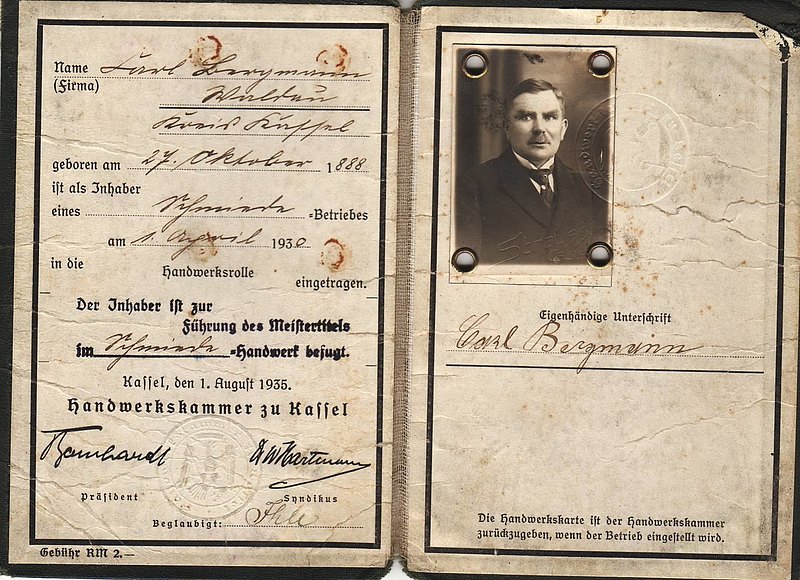 Name Karl Bergmann
(Firma) Waldau
Kreis Kassel
geboren am 27. Oktober 1888
ist als Inhaber
eines Schmiede -Betriebes
am 1. April 1930
in die
Handwerksrolle
eingetragen.
Der Inhaber ist zur
Führung des Meistertitels
im Schmiede -Handwerk befugt.
Kassel, den 1. August 1935.
Handwerkskammer zu Kassel
Präsident Syndikus
Beglaubigt:
Gebühr RM 2.—
Eigenhändige Unterschrift
Carl Bergmann
Die Handwerkskarte ist der Handwerkskammer
zurückzugeben, wenn der Betrieb eingestellt wird.